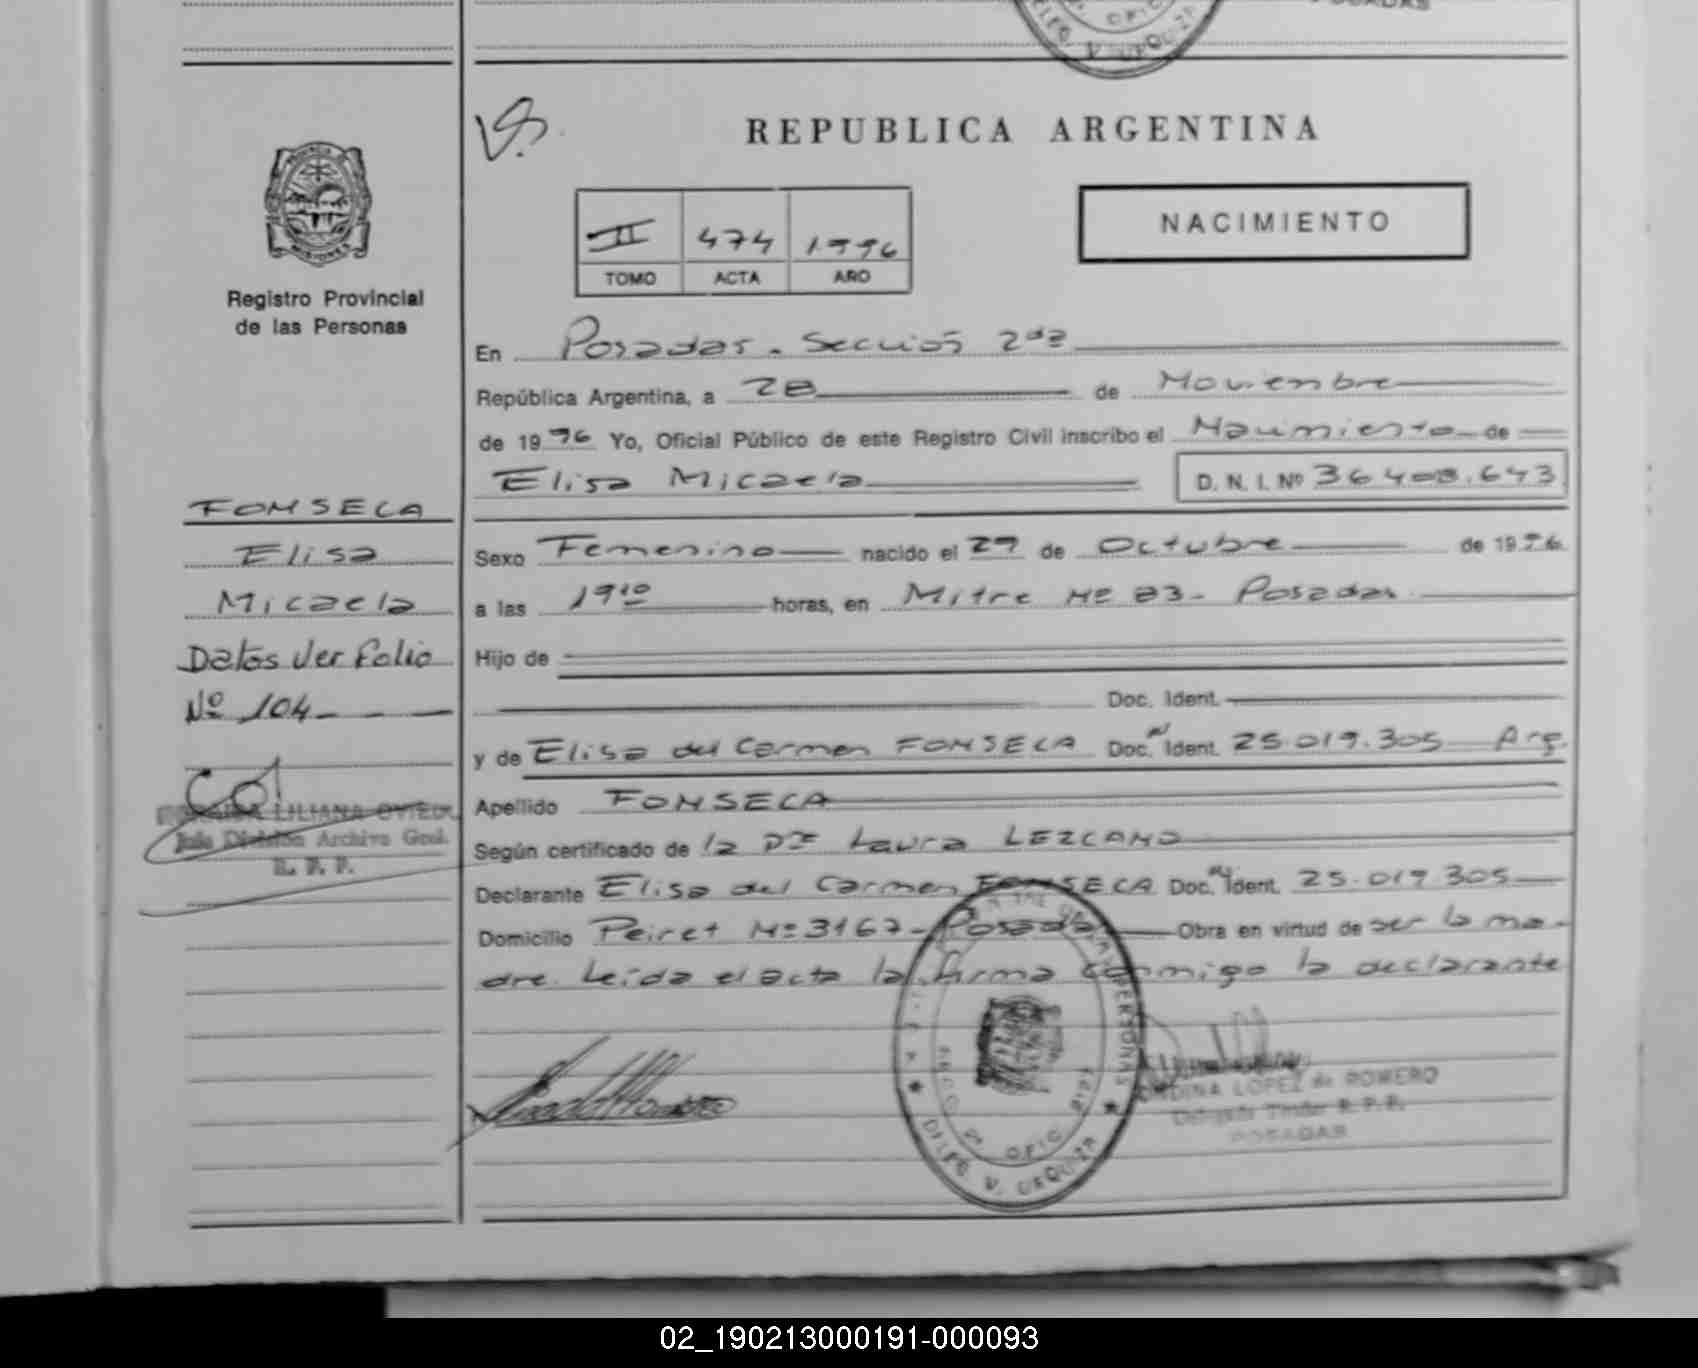 POSADAS
OFIC
DELEG. V. URQUIZA
REPUBLICA ARGENTINA
II 474 1996
TOMO ACTA AÑO
NACIMIENTO
PROVINCIA DE
MISIONES
Registro Provincial
de las Personas
En Posadas. Sección 2da
República Argentina, a 28 de Noviembre
de 1996 Yo, Oficial Público de este Registro Civil inscribo el Nacimiento de
Elisa Micaela D. N. I. Nº 36.408.643
FONSECA
Elisa
Micaela
Datos Ver folio
Nº 104
Sexo Femenino nacido el 29 de Octubre de 1996
a las 19 10 horas, en Mitre Nº 83 - Posadas
Hijo de
Doc. Ident.
y de Elisa del Carmen FONSECA Doc. Ident. 25.019.305 Arg.
Apellido FONSECA
Según certificado de la Dra Laura LEZCANO
Declarante Elisa del Carmen FONSECA Doc. Ident. 25.019.305
Domicilio Peiret Nº 3167 - Posadas Obra en virtud de ser la ma-
dre. Leída el acta la firma conmigo la declarante
LILIANA OVIEDO
Jefe División Archivo Gral.
R. P. P.
PERSONAS
OFIC
DELEG. V. URQUIZA
LOPEZ de ROMERO
Delegada Titular R.P.P.
POSADAS
02_190213000191-000093